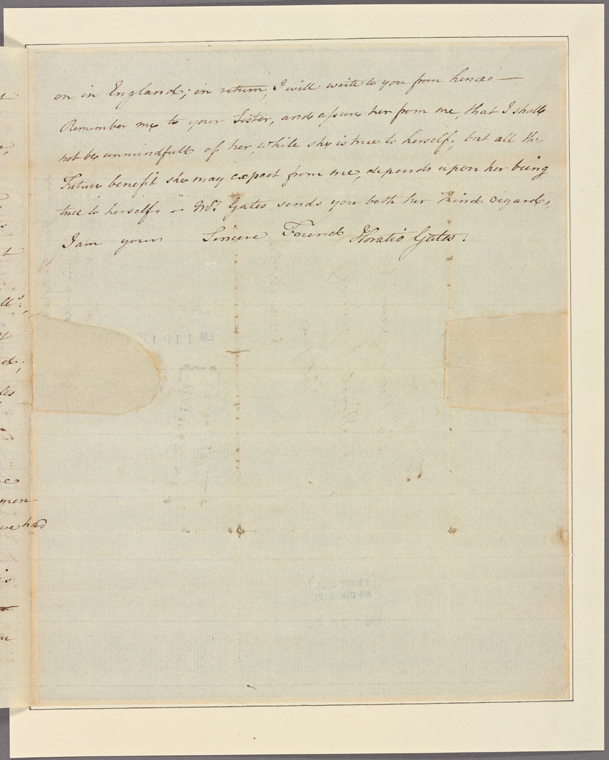 on in England; in return, I will write to you from hence —
Remember me to your Sister, and assure her from me, that I shall
not be unmindfull of her while she is true to herself; but all the
Future benefit she may expect from me, depends upon her being
true to herself. — Mrs. Gates sends you both her kind regards,
I am your Sincere Friend Horatio Gates.
men-
we had